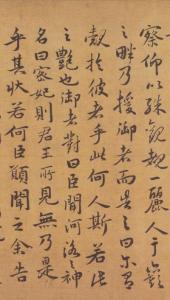 察仰以殊觀覩一麗人于巖
之畔乃援御者而告之曰尔有
覿於彼者乎此何人斯若此
之艷也御者對曰臣聞河洛之神
名曰宓妃則君王所見無乃是
乎其狀若何臣願聞之余告